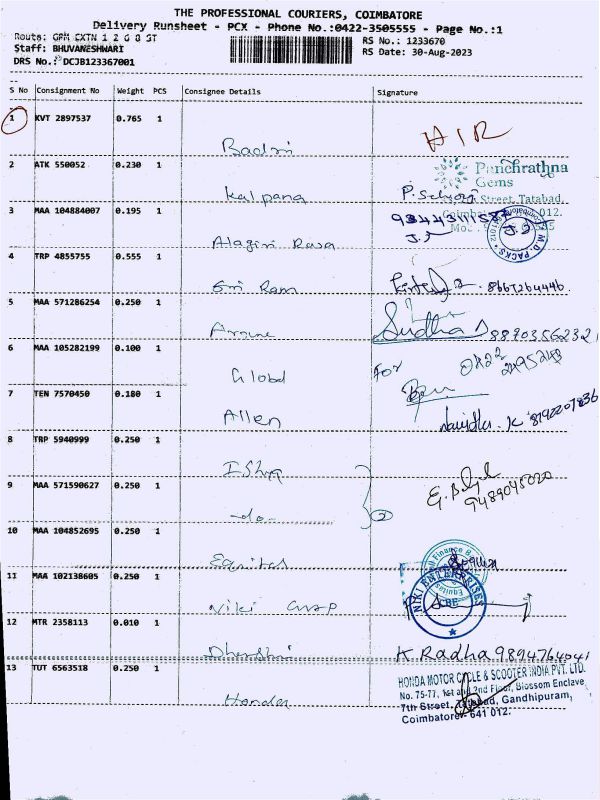 THE PROFESSIONAL COURIERS, COIMBATORE
Delivery Runsheet - PCX - Phone No.:0422-3505555 - Page No.:1
Route: GPM EXTN 1 2 6 8 ST
RS No.: 1233670
Staff: BHUVANESHWARI
RS Date: 30-Aug-2023
DRS No.: DCJB123367001
S No Consignment No Weight PCS Consignee Details Signature
1 KVT 2897537 0.765 1
Badri
2 ATK 550052 0.230 1
Panchrathna
Gems
Kalpana
Street, Tatabad,
3 MAA 104884007 0.195 1
Coimbatore 012.
Alagiri
J.S
M.D. PACKS
4 TRP 4855755 0.555 1
Sri Ram
8667264446
5 MAA 571286254 0.250 1
Sudha
6 MAA 105282199 0.100 1
For
0422
Global
7 TEN 7570450 0.180 1
Allen
8 TRP 5940999 0.250 1
9 MAA 571590627 0.250 1
-do-
2
10 MAA 104852695 0.250 1
Equitas
11 MAA 102138605 0.250 1
NIKI ENTERPRISES
CBE
Niki
12 MTR 2358113 0.010 1
K Radha 9894764041
13 TUT 6563518 0.250 1
HONDA MOTOR CYCLE & SCOOTER INDIA PVT. LTD.
No. 75-77, 1st and 2nd Floor, Blossom Enclave
7th Street, Tatabad, Gandhipuram,
Coimbatore- 641 012.
Honda